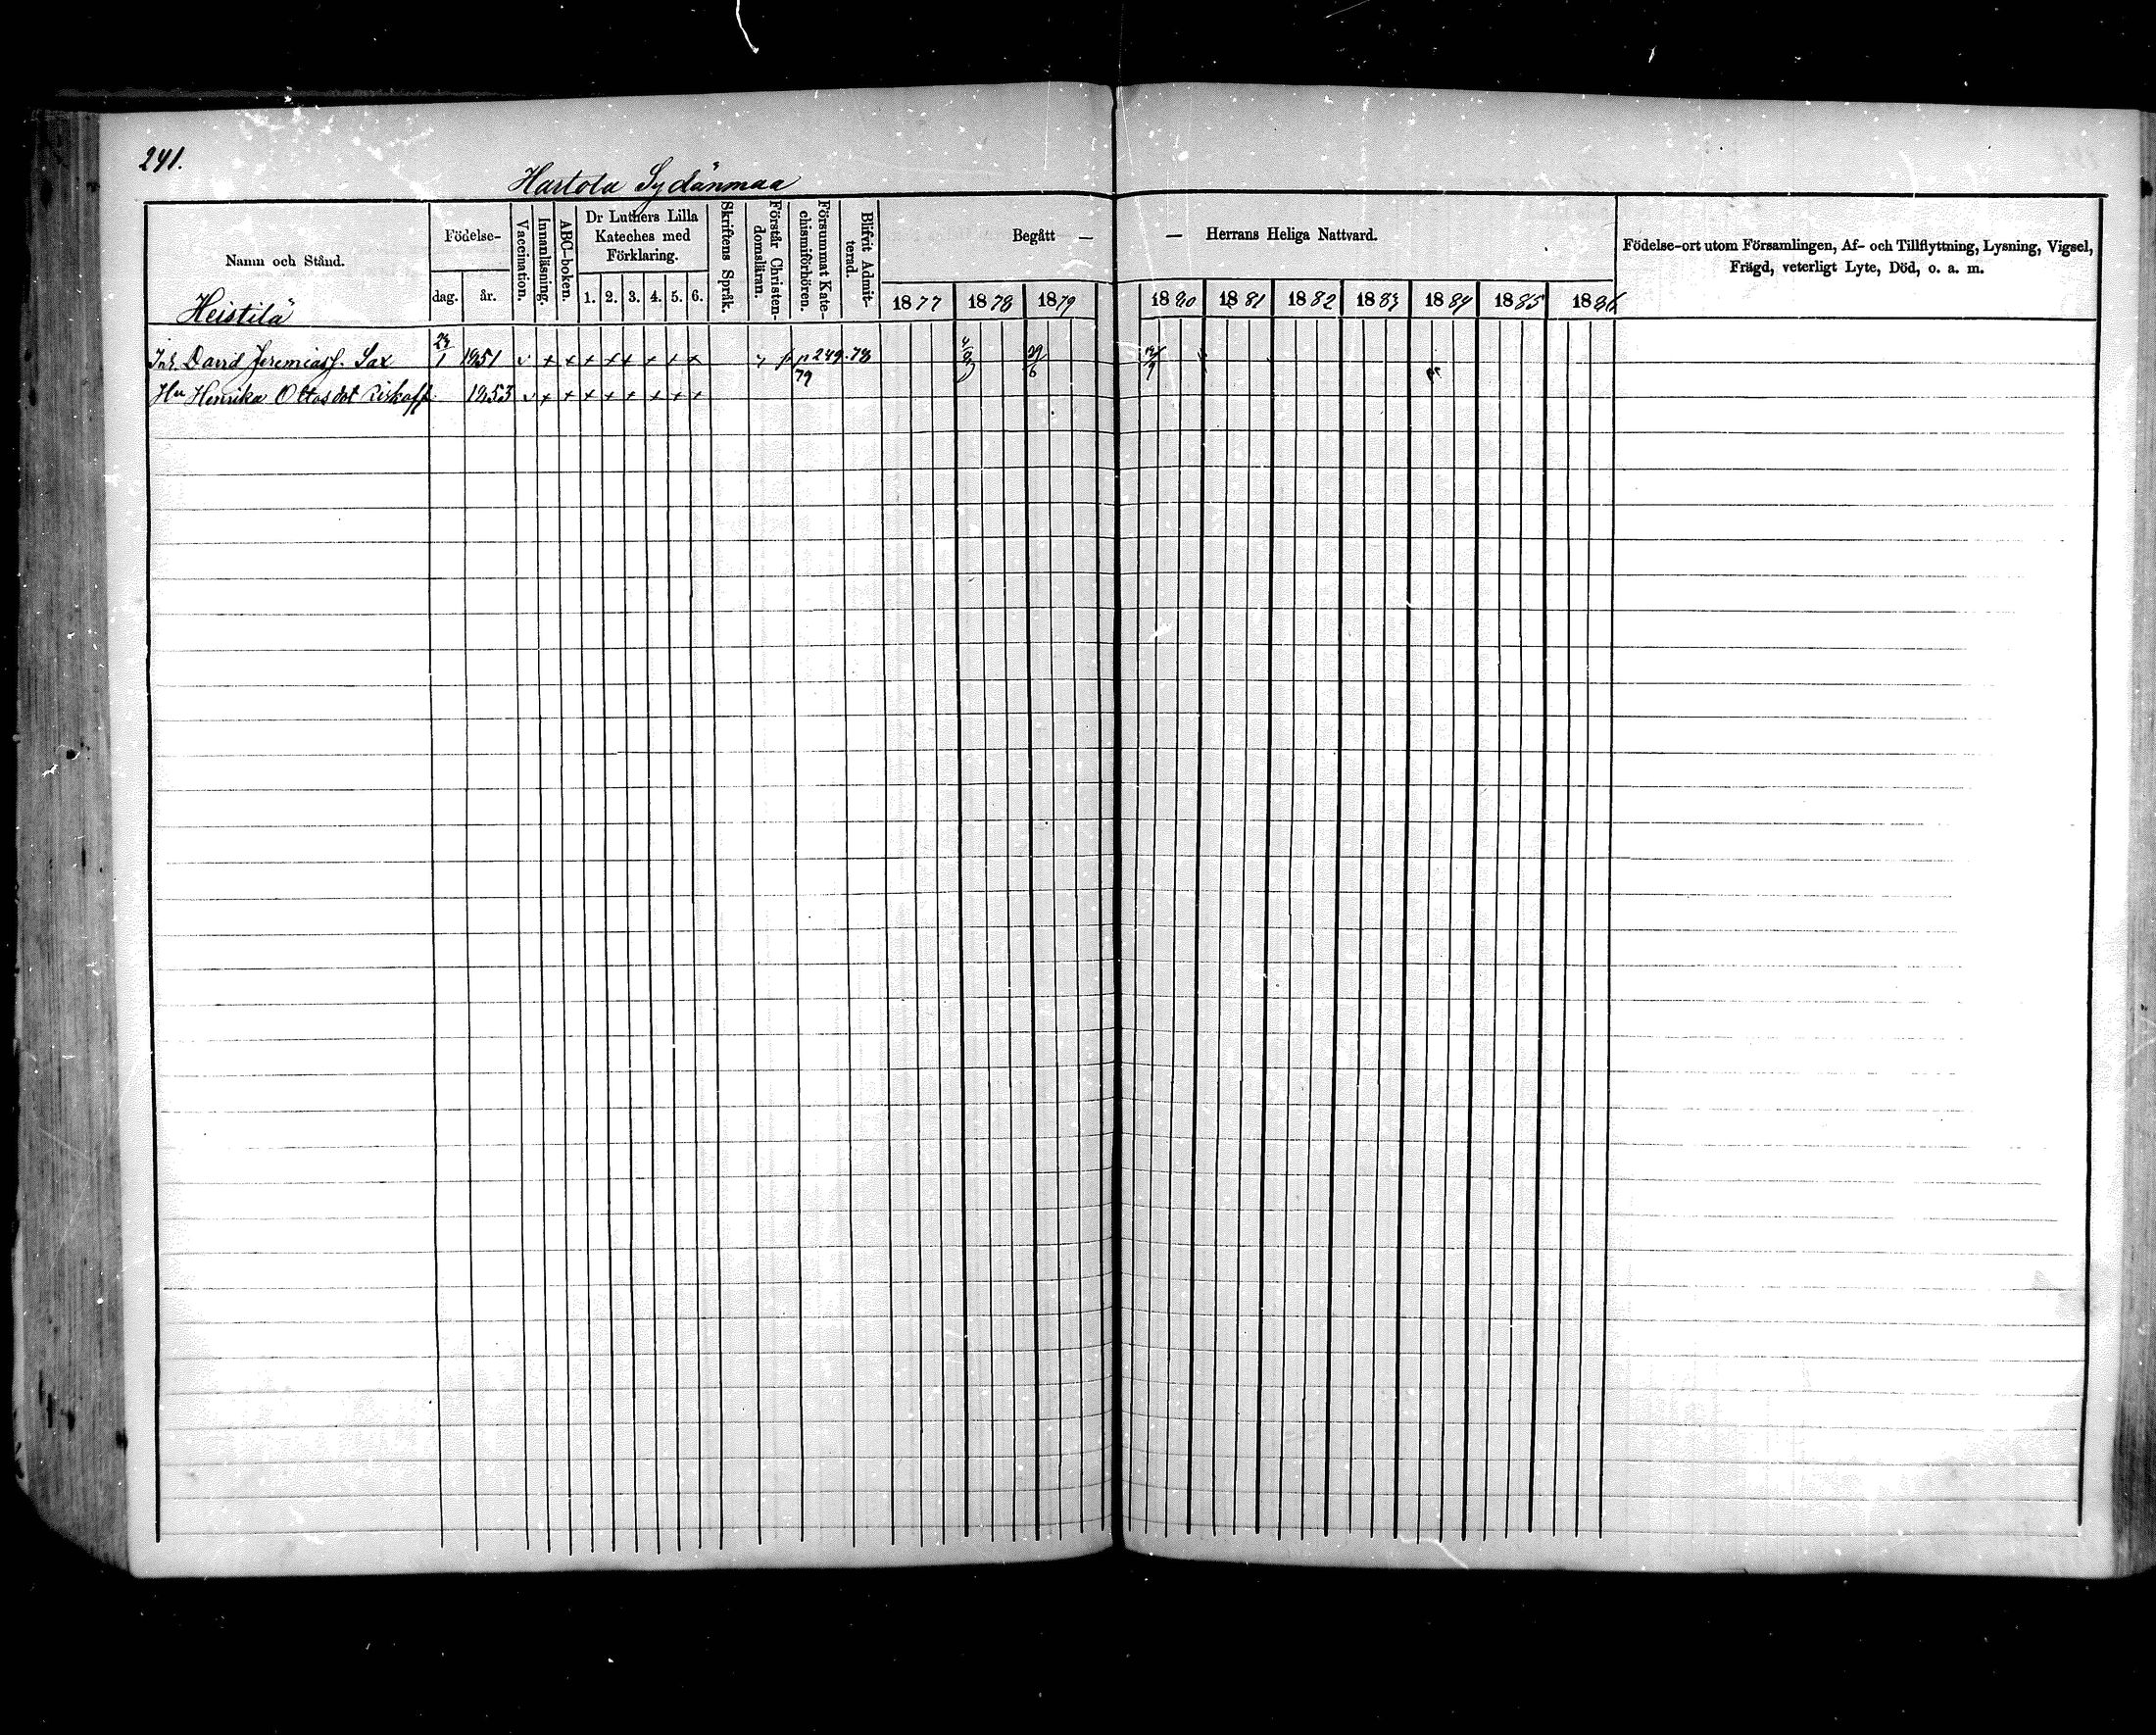 241.
Hartola Sydänmaa
Namn och Stånd.
Födelse-
dag. år.
Vaccination.
Innanläsning.
ABC-boken.
Dr Luthers Lilla
Kateches med
Förklaring.
1. 2. 3. 4. 5. 6.
Skriftens Språk.
Förstår Christen-
domsläran.
Försummat Kate-
chismiförhören.
Blifvit Admit-
terad.
Begått — — Herrans Heliga Nattvard.
1877 1878 1879 1880 1881 1882 1883 1884 1885 1886
Födelse-ort utom Församlingen, Af- och Tillflyttning, Lysning, Vigsel,
Frägd, veterligt Lyte, Död, o. a. m.
Heistilä
Inh. David Jeremiass. Sax 23/1 1851 v + + + + + + + + p 249. 78
79
Hu Henrika Ottosdot 1853 v + + + + + + + +